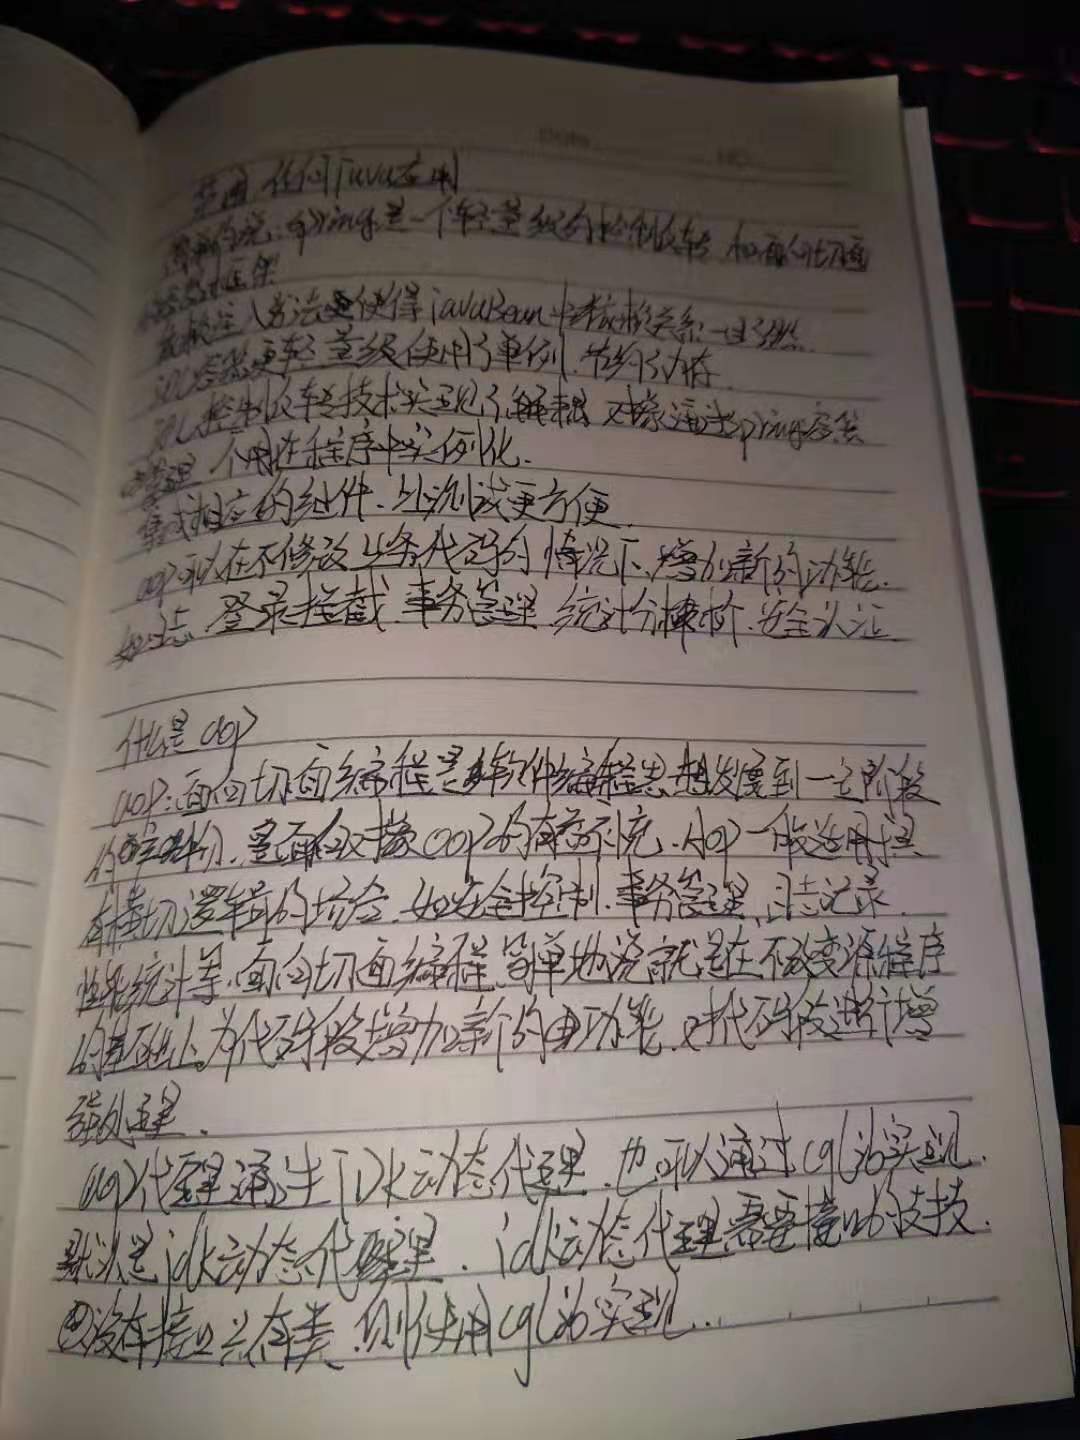 Date. NO.
任何Java应用
spring是一个轻量级的控制反转和面向切面
框架
注入方法更使得javaBean之间依赖关系一目了然.
IOC容器更轻量级使用了单例.节约了内存.
IOC控制反转技术实现了解耦 对象通过spring容器
管理 不用在程序中实例化.
集成相应的组件.让测试更方便.
aop可以在不修改业务代码的情况下.增加新的功能.
如日志.登录拦截.事务管理 统计分析.安全认证
什么是aop
aop:面向切面编程是软件编程思想发展到一定阶段
的产物.是面向对象oop的有益补充.AOP一般适用于具
有横切逻辑的场合.如安全控制.事务管理.日志记录.
性能统计等.面向切面编程.简单地说就是在不改变源程序
的基础上为代码段增加新的功能.对代码段进行增
强处理.
aop代理通过JDK动态代理.也可以通过cglib实现.
默认是jdk动态代理.jdk动态代理需要接口的支持.
没有接口只有类.则使用cglib实现...